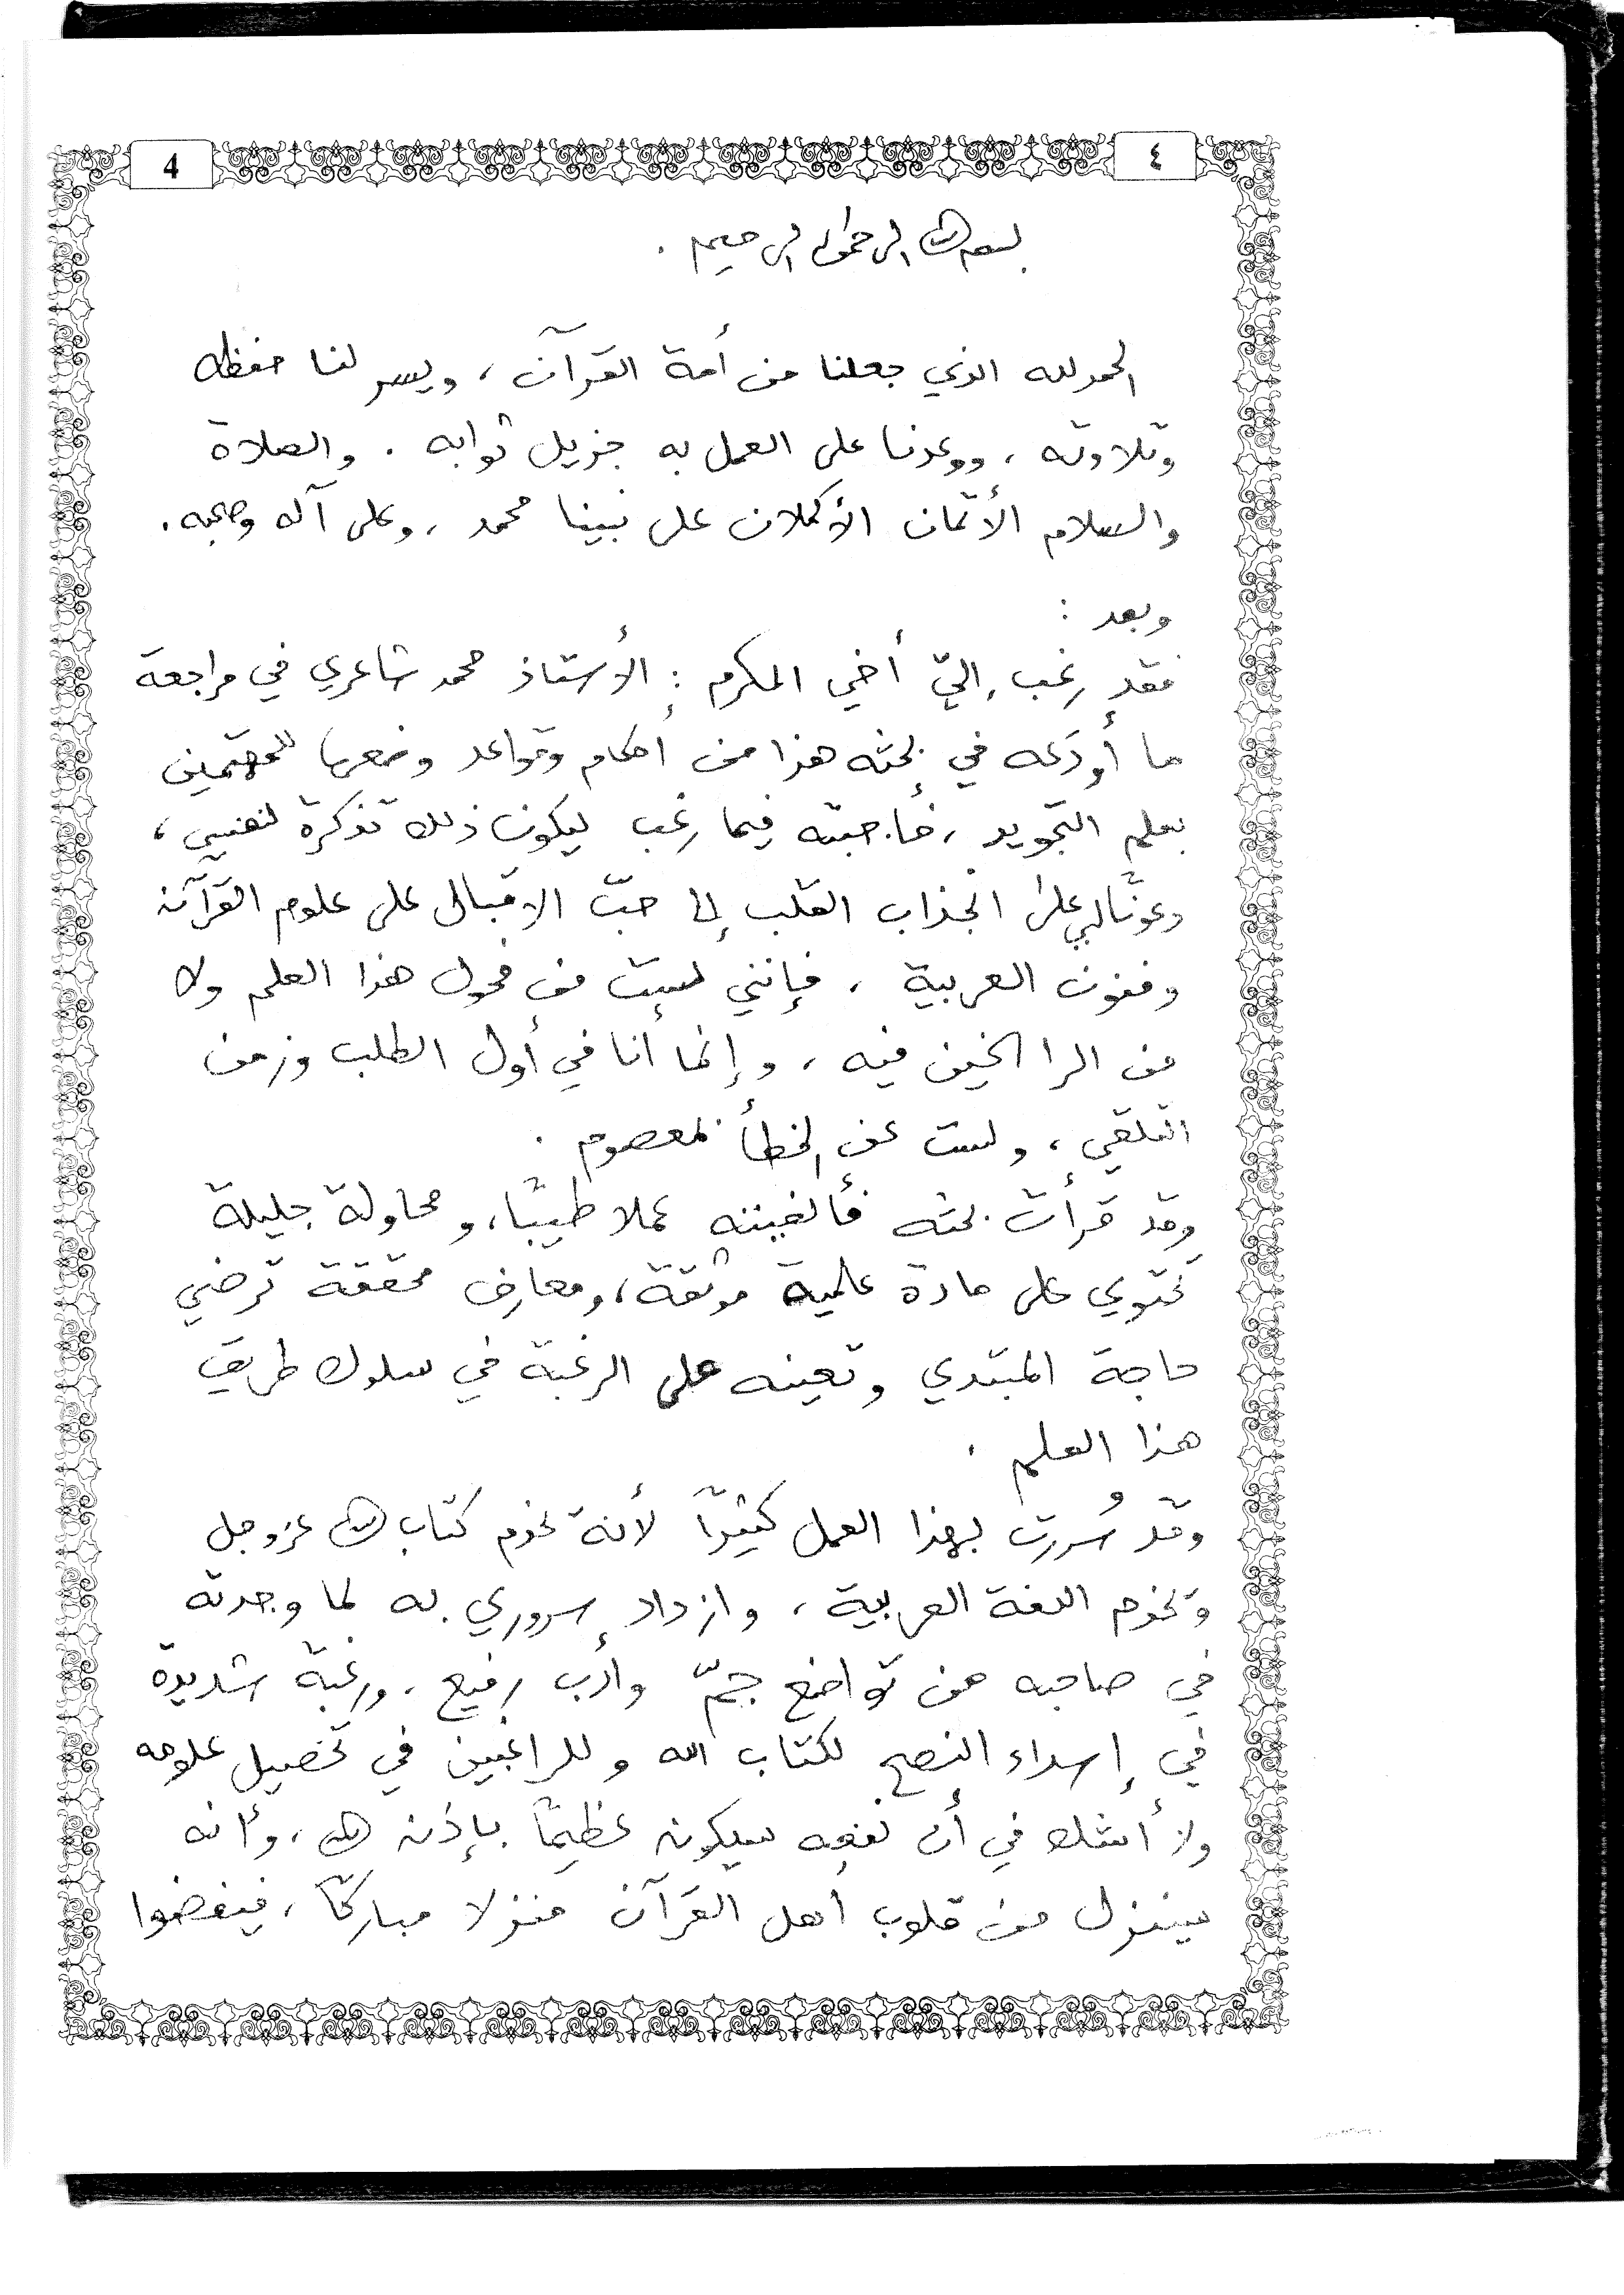 4 ٤
بسم الله الرحمن الرحيم .
الحمد لله الذي جعلنا من أمة القرآن ، ويسر لنا حفظه
وتلاوته ، ووعدنا على العمل به جزيل ثوابه . والصلاة
والسلام الأتمان الأكملان على نبينا محمد ، وعلى آله وصحبه .
وبعد :
فقد رغب إليّ أخي المكرم : الأستاذ محمد شاعري في مراجعة
ما أودَعه في بحثه هذا من أحكام وقواعد وضعها للمهتمين
بعلم التجويد ، فأجبته فيما رغب ليكون ذلك تذكرة لنفسي ،
وعونًا لي على انجذاب القلب إلى حبّ الإقبال على علوم القرآن
وفنون العربية ، فإنني لست من فحول هذا العلم ولا
من الراسخين فيه ، وإنما أنا في أول الطلب وزمن
التلقي ، ولست عن الخطأ بمعصوم .
وقد قرأت بحثه فألفيته عملا طيبًا ، ومحاولة جليلة
تحتوي على مادة علمية موثقة ، ومعارف محققة ترضي
حاجة المبتدي وتعينه على الرغبة في سلوك طريق
هذا العلم .
وقد سُررت بهذا العمل كثيرًا لأنه يخدم كتاب الله عز وجل
ويخدم اللغة العربية ، وازداد سروري به لما وجدته
في صاحبه من تواضع جمّ وأدب رفيع ، ورغبة شديدة
في إسداء النصح لكتاب الله وللراغبين في تحصيل علومه
ولا أشك في أن نفعه سيكون عظيمًا بإذن الله ، وأنه
سينزل من قلوب أهل القرآن منزلا مباركًا ، فينهضوا